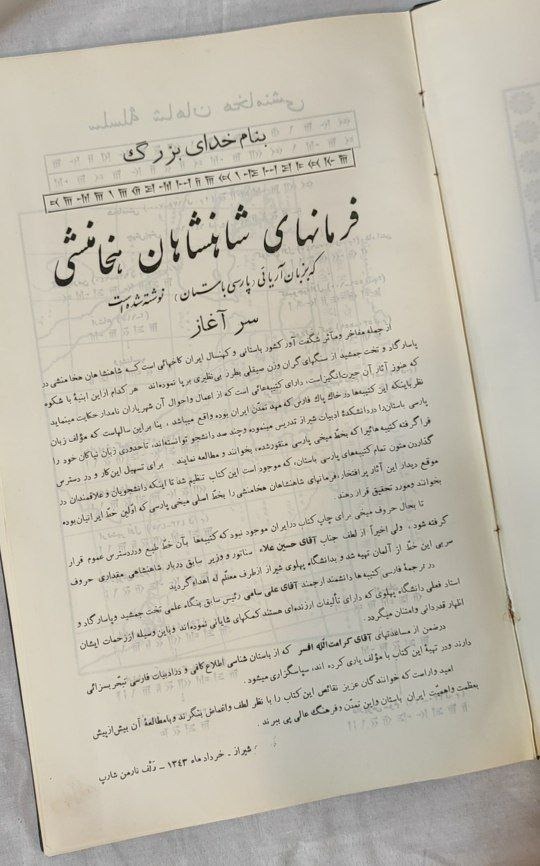 بنام خدای بزرگ
فرمانهای شاهنشاهان هخامنشی
که بزبان آریائی (پارسی باستان) نوشته شده است
سر آغاز
از جمله مفاخر ومآثر شگفت آور کشور باستانی و کهنسال ایران کاخهائی است که شاهنشاهان هخامنشی در
پاسارگاد و تخت جمشید از سنگهای گران وزن صیقلی بطرز بی‌نظیری برپا نموده‌اند هر کدام از این ابنیهٔ با شکوه
که هنوز آثار آن حیرت‌انگیز است، دارای کتیبه‌هائی است که از اعمال و احوال آن شهریاران نامدار حکایت مینماید
نظر باینکه این کتیبه‌ها در خاك پاك فارس که مهد تمدّن ایران بوده واقع میباشد، بنا بر این سالهاست که مؤلف زبان
پارسی باستان را در دانشکدهٔ ادبیات شیراز تدریس مینموده و چند صد دانشجو توانسته‌اند، تاحدودی زبان نیاکان خود را
فرا گرفته کتیبه‌هائیرا که بخطّ میخی پارسی منقور شده، بخوانند و مطالعه نمایند. برای تسهیل این کار و در دسترس
گذاردن متون تمام کتیبه‌های پارسی باستان، که موجود است این کتاب تنظیم شد تا اینکه دانشجویان و علاقمندان در
موقع دیدار این آثار پر افتخار، فرمانهای شاهنشاهان هخامنشی را بخطّ اصلی میخی پارسی که اوّلین خطّ ایرانیان بوده
بخوانند ومورد تحقیق قرار دهند.
تا بحال حروف میخی برای چاپ کتاب در ایران موجود نبود که کتیبه‌ها بآن خطّ طبع ودر دسترس عموم قرار
گرفته شود، ولی اخیراً از لطف جناب آقای حسین علاء سناتور و وزیر سابق دربار شاهنشاهی مقداری حروف
سربی این خطّ از آلمان تهیه شد و بدانشگاه پهلوی شیراز از طرف معظّم له اهداء گردید
در ترجمهٔ فارسی کتیبه‌ها دانشمند ارجمند آقای علی سامی رئیس سابق بنگاه علمی تخت جمشید و پاسارگاد و
استاد فعلی دانشگاه پهلوی که دارای تألیفات ارزنده‌ای هستند کمکهای شایانی نموده‌اند و باین وسیله از زحمات ایشان
اظهار قدردانی وامتنان میگردد.
در ضمن از مساعدتهای آقای کرامت‌الله افسر که از باستان شناسی اطلاع کافی و در ادبیات فارسی تبحّر بسزائی
دارند ودر تهیهٔ این کتاب با مؤلف یاری کرده اند، سپاسگزاری میشود.
امید وار است که خوانندگان عزیز نقائص این کتاب را با نظر لطف واغماض بنگرند وبامطالعهٔ آن بیش از پیش
بعظمت واهمیت ایران باستان واین تمدّن وفرهنگ عالی پی ببرند.
شیراز - خرداد ماه ۱۳۴۳ - رلف نارمن شارپ